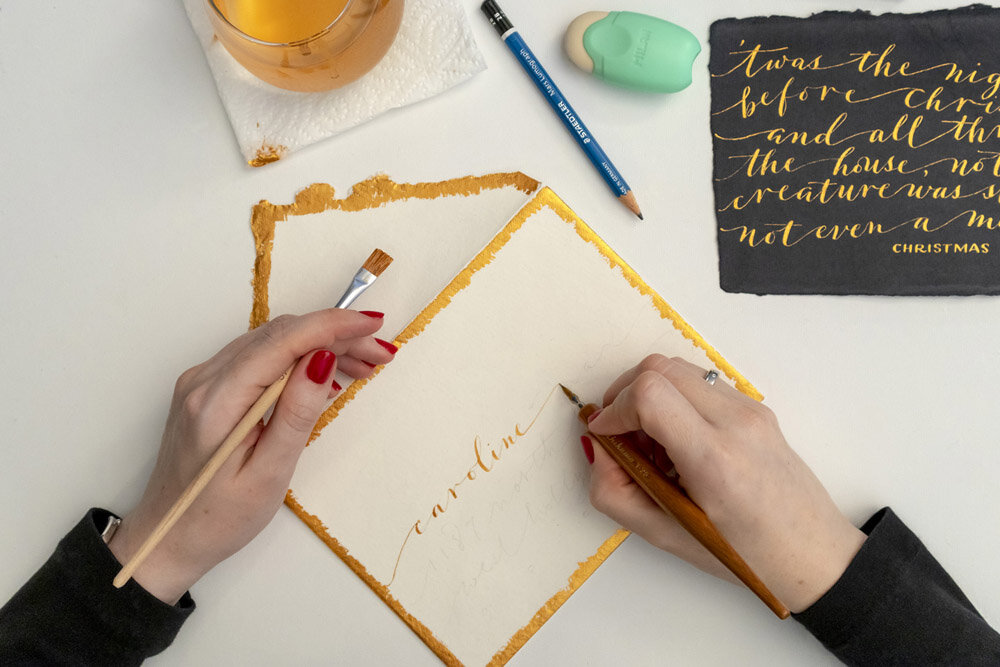 2B
Mars Lumograph
STAEDTLER
MADE IN GERMANY
MILAN
'twas the nig
before Chri
and all th
the house, not
creature was s
not even a m
CHRISTMAS
caroline